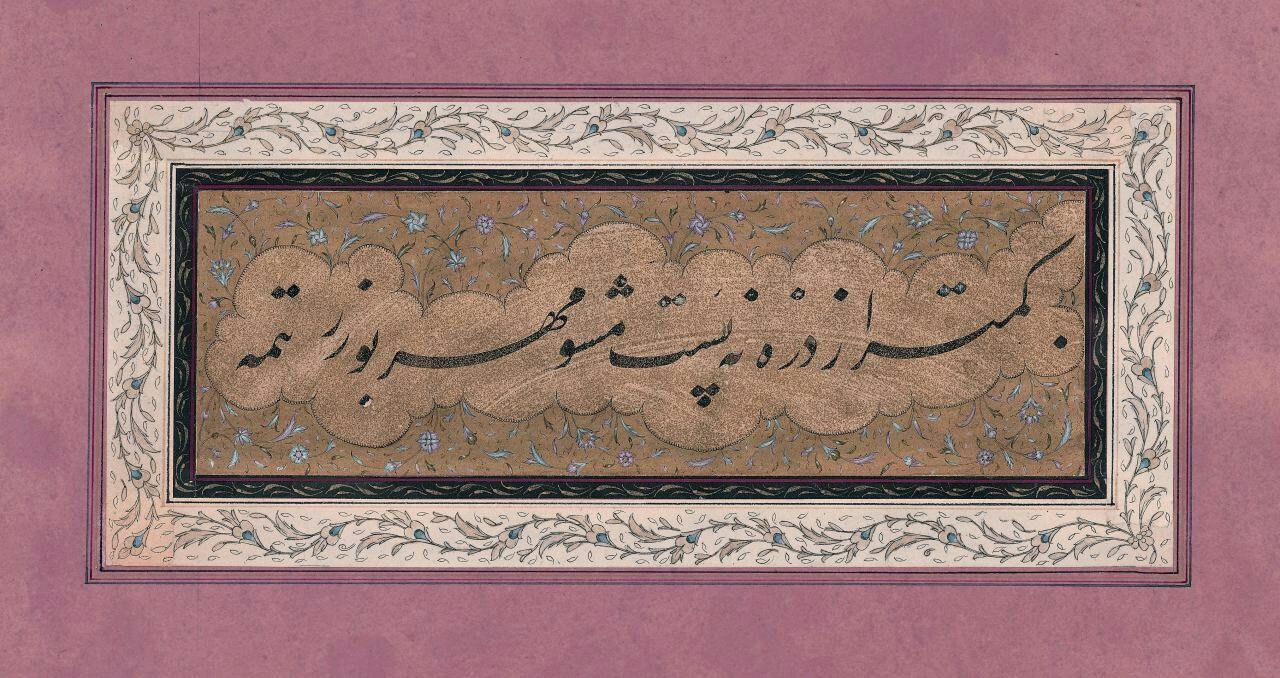 کمتر از ذره نه پست مشو مهر بورز